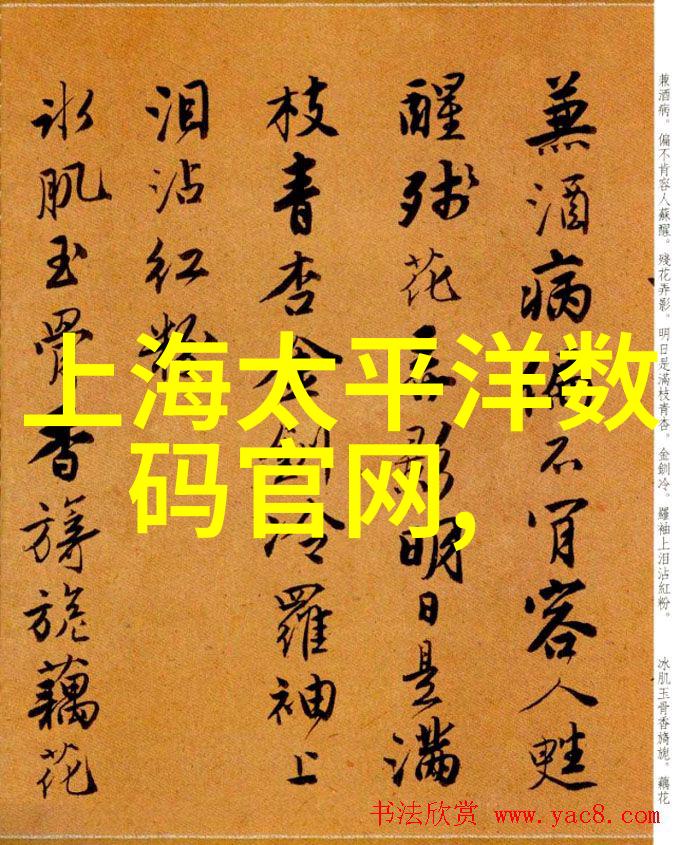 兼酒病偏不肯容人甦
醒残花弄影明日是满
枝青杏金釧冷羅袖上
泪沾红粉
冰肌玉骨香旖旎藕花
兼酒病。偏不肯容人蘇醒。殘花弄影。明日是滿枝青杏。金釧冷。羅袖上泪沾紅粉。
冰肌玉骨香旖旎。藕花
上海太平洋数
码官网,
书法欣赏 www.yac8.com